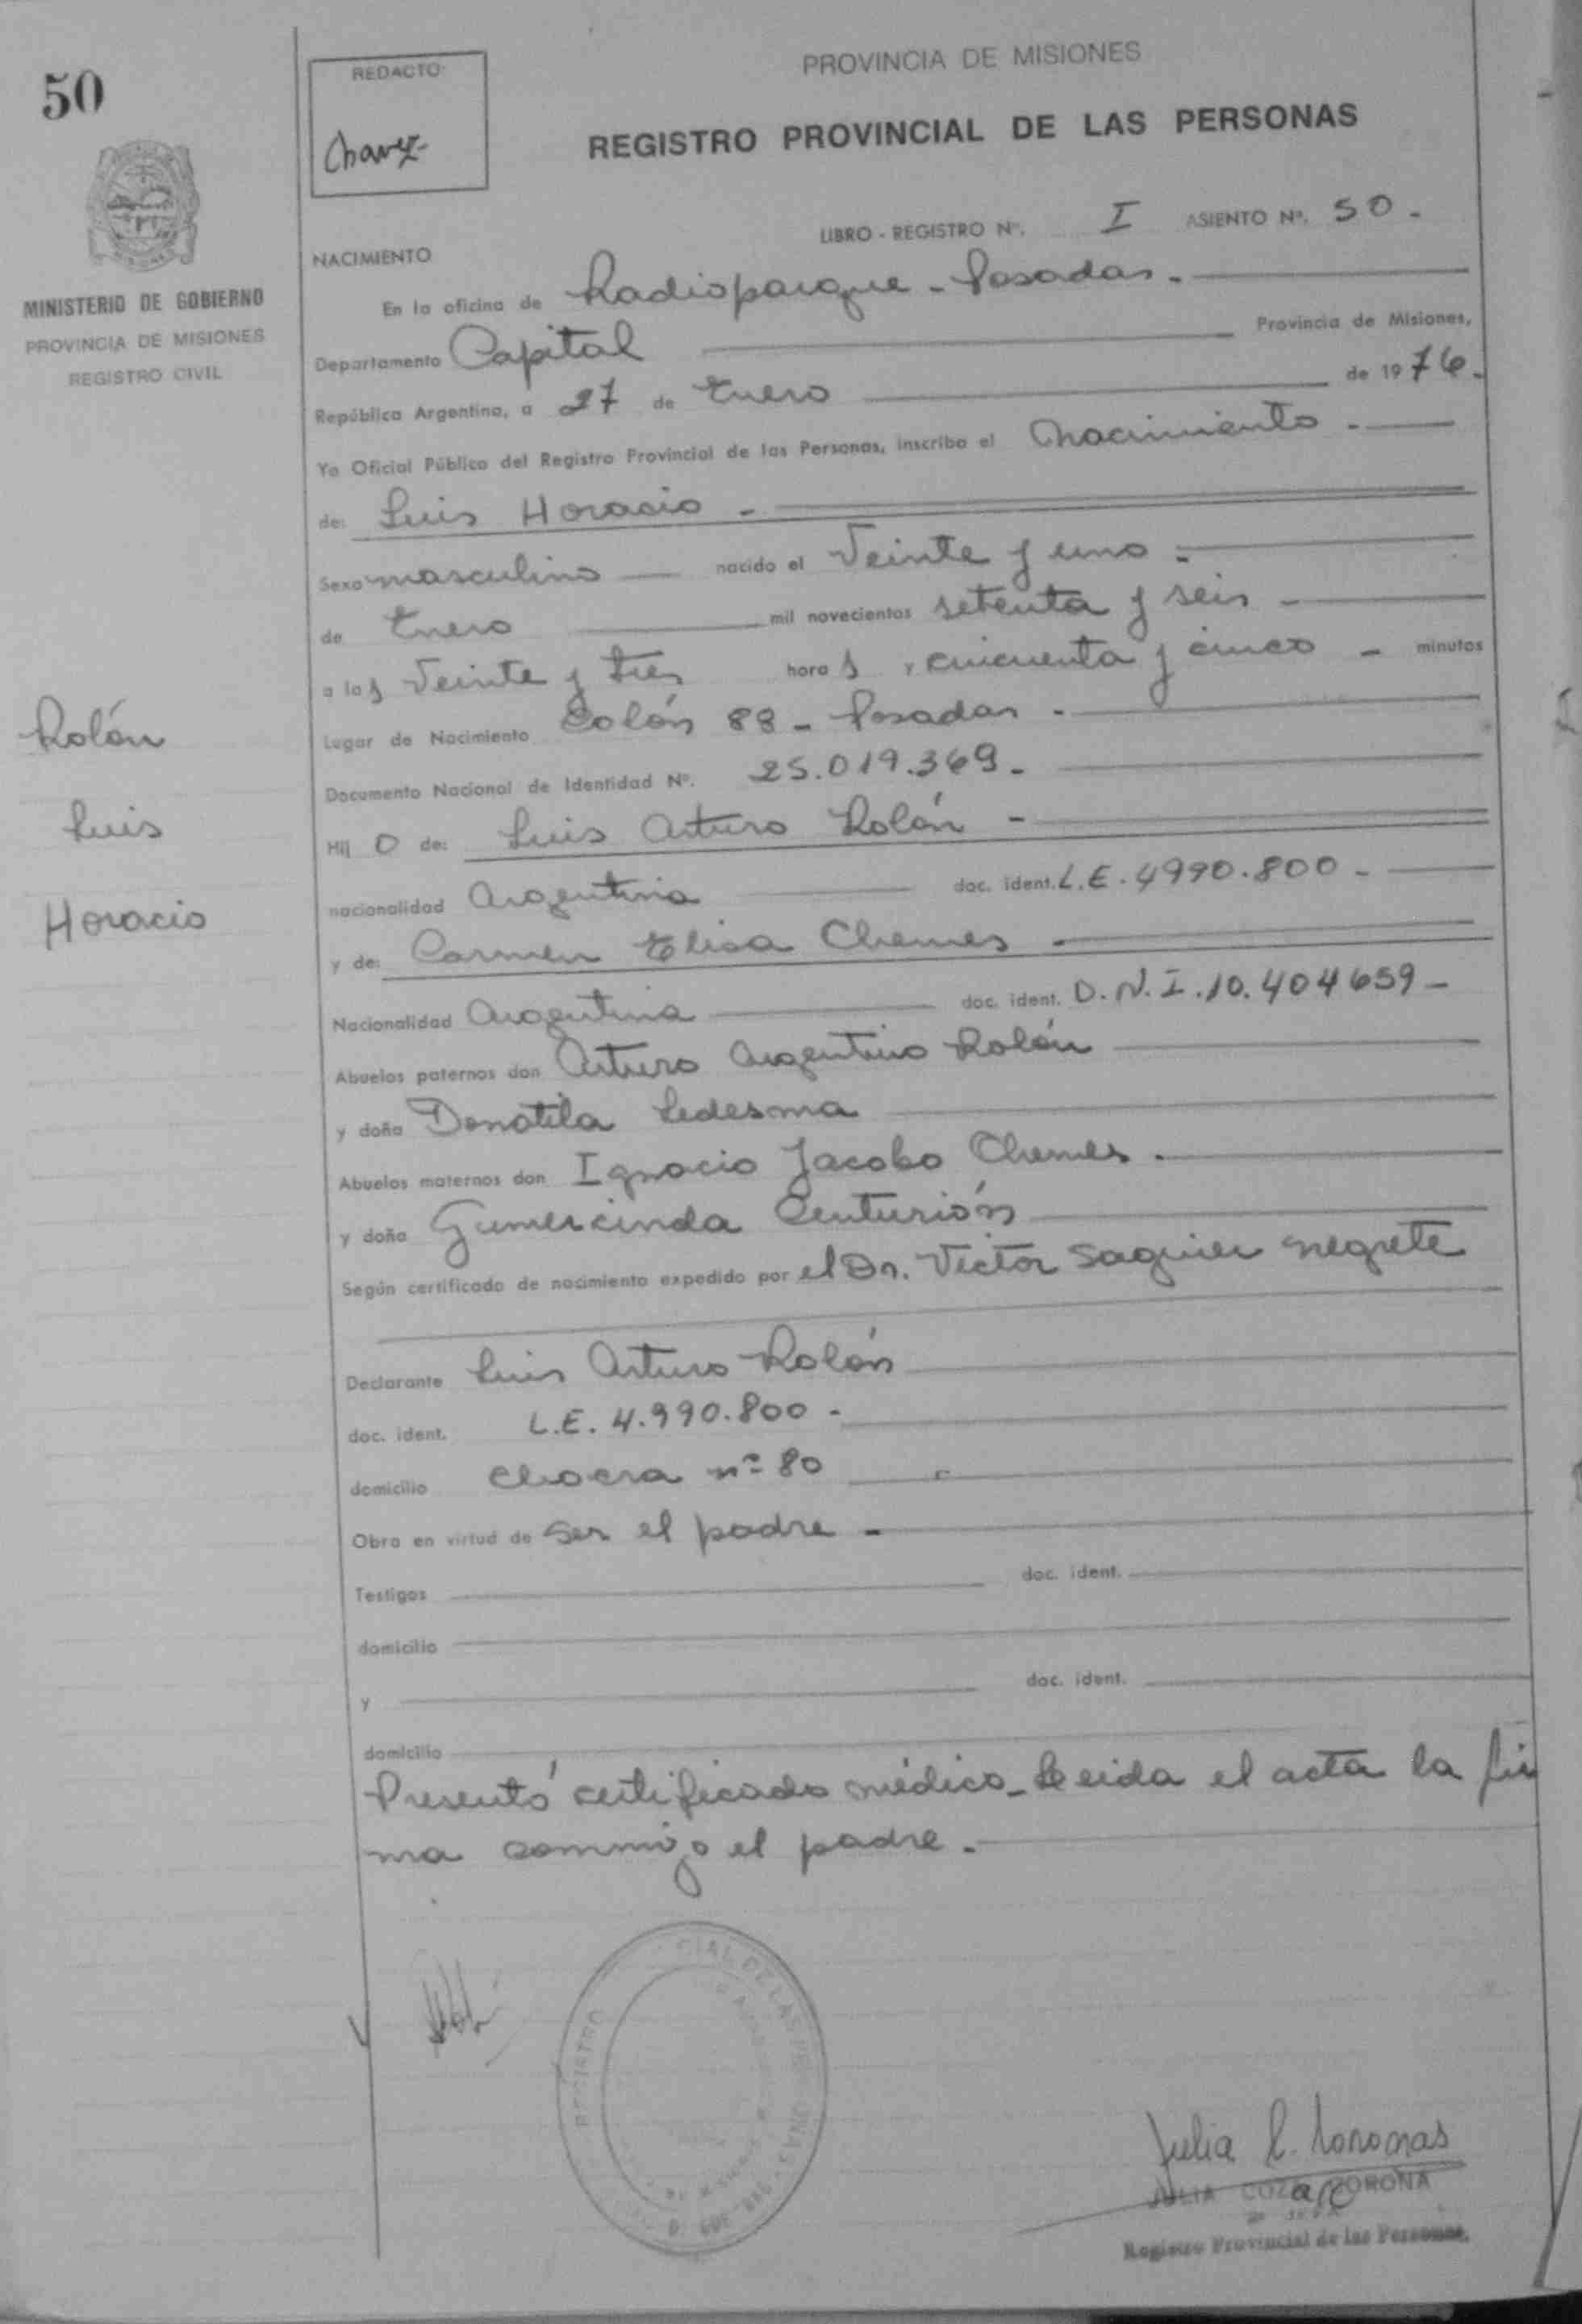 50
REDACTO:
Chavez
PROVINCIA DE MISIONES
REGISTRO PROVINCIAL DE LAS PERSONAS
LIBRO - REGISTRO Nº. I ASIENTO Nº. 50.
NACIMIENTO
MINISTERIO DE GOBIERNO
PROVINCIA DE MISIONES
REGISTRO CIVIL
En la oficina de Radioparque - Posadas.
Departamento Capital Provincia de Misiones,
República Argentina, a 27 de Enero de 1976.
Yo Oficial Público del Registro Provincial de las Personas, inscribo el Nacimiento.
de: Luis Horacio -
Sexo masculino nacido el Veinte y uno -
de Enero mil novecientos setenta y seis -
a las Veinte y tres horas y cincuenta y cinco - minutos
Lugar de Nacimiento Colón 88 - Posadas.
Documento Nacional de Identidad Nº. 25.019.369.
Rolón
Luis
Horacio
Hijo de: Luis Arturo Rolón -
nacionalidad Argentina doc. ident. L.E. 4990.800 -
y de: Carmen Elisa Chemes -
Nacionalidad Argentina doc. ident. D.N.I. 10.404659 -
Abuelos paternos don Arturo Argentino Rolón
y doña Donatila Ledesma
Abuelos maternos don Ignacio Jacobo Chemes.
y doña Gumercinda Centurión
Según certificado de nacimiento expedido por el Dr. Victor Saguier Negrete
Declarante Luis Arturo Rolón
doc. ident. L.E. 4.990.800 -
domicilio Chacra nº 80
Obra en virtud de ser el padre -
Testigos doc. ident.
domicilio
y doc. ident.
domicilio
Presentó certificado médico - Leida el acta la fir
ma conmigo el padre.
REGISTRO CIAL DE LAS
Julia
JULIA CORONA
Registro Provincial de las Personas.